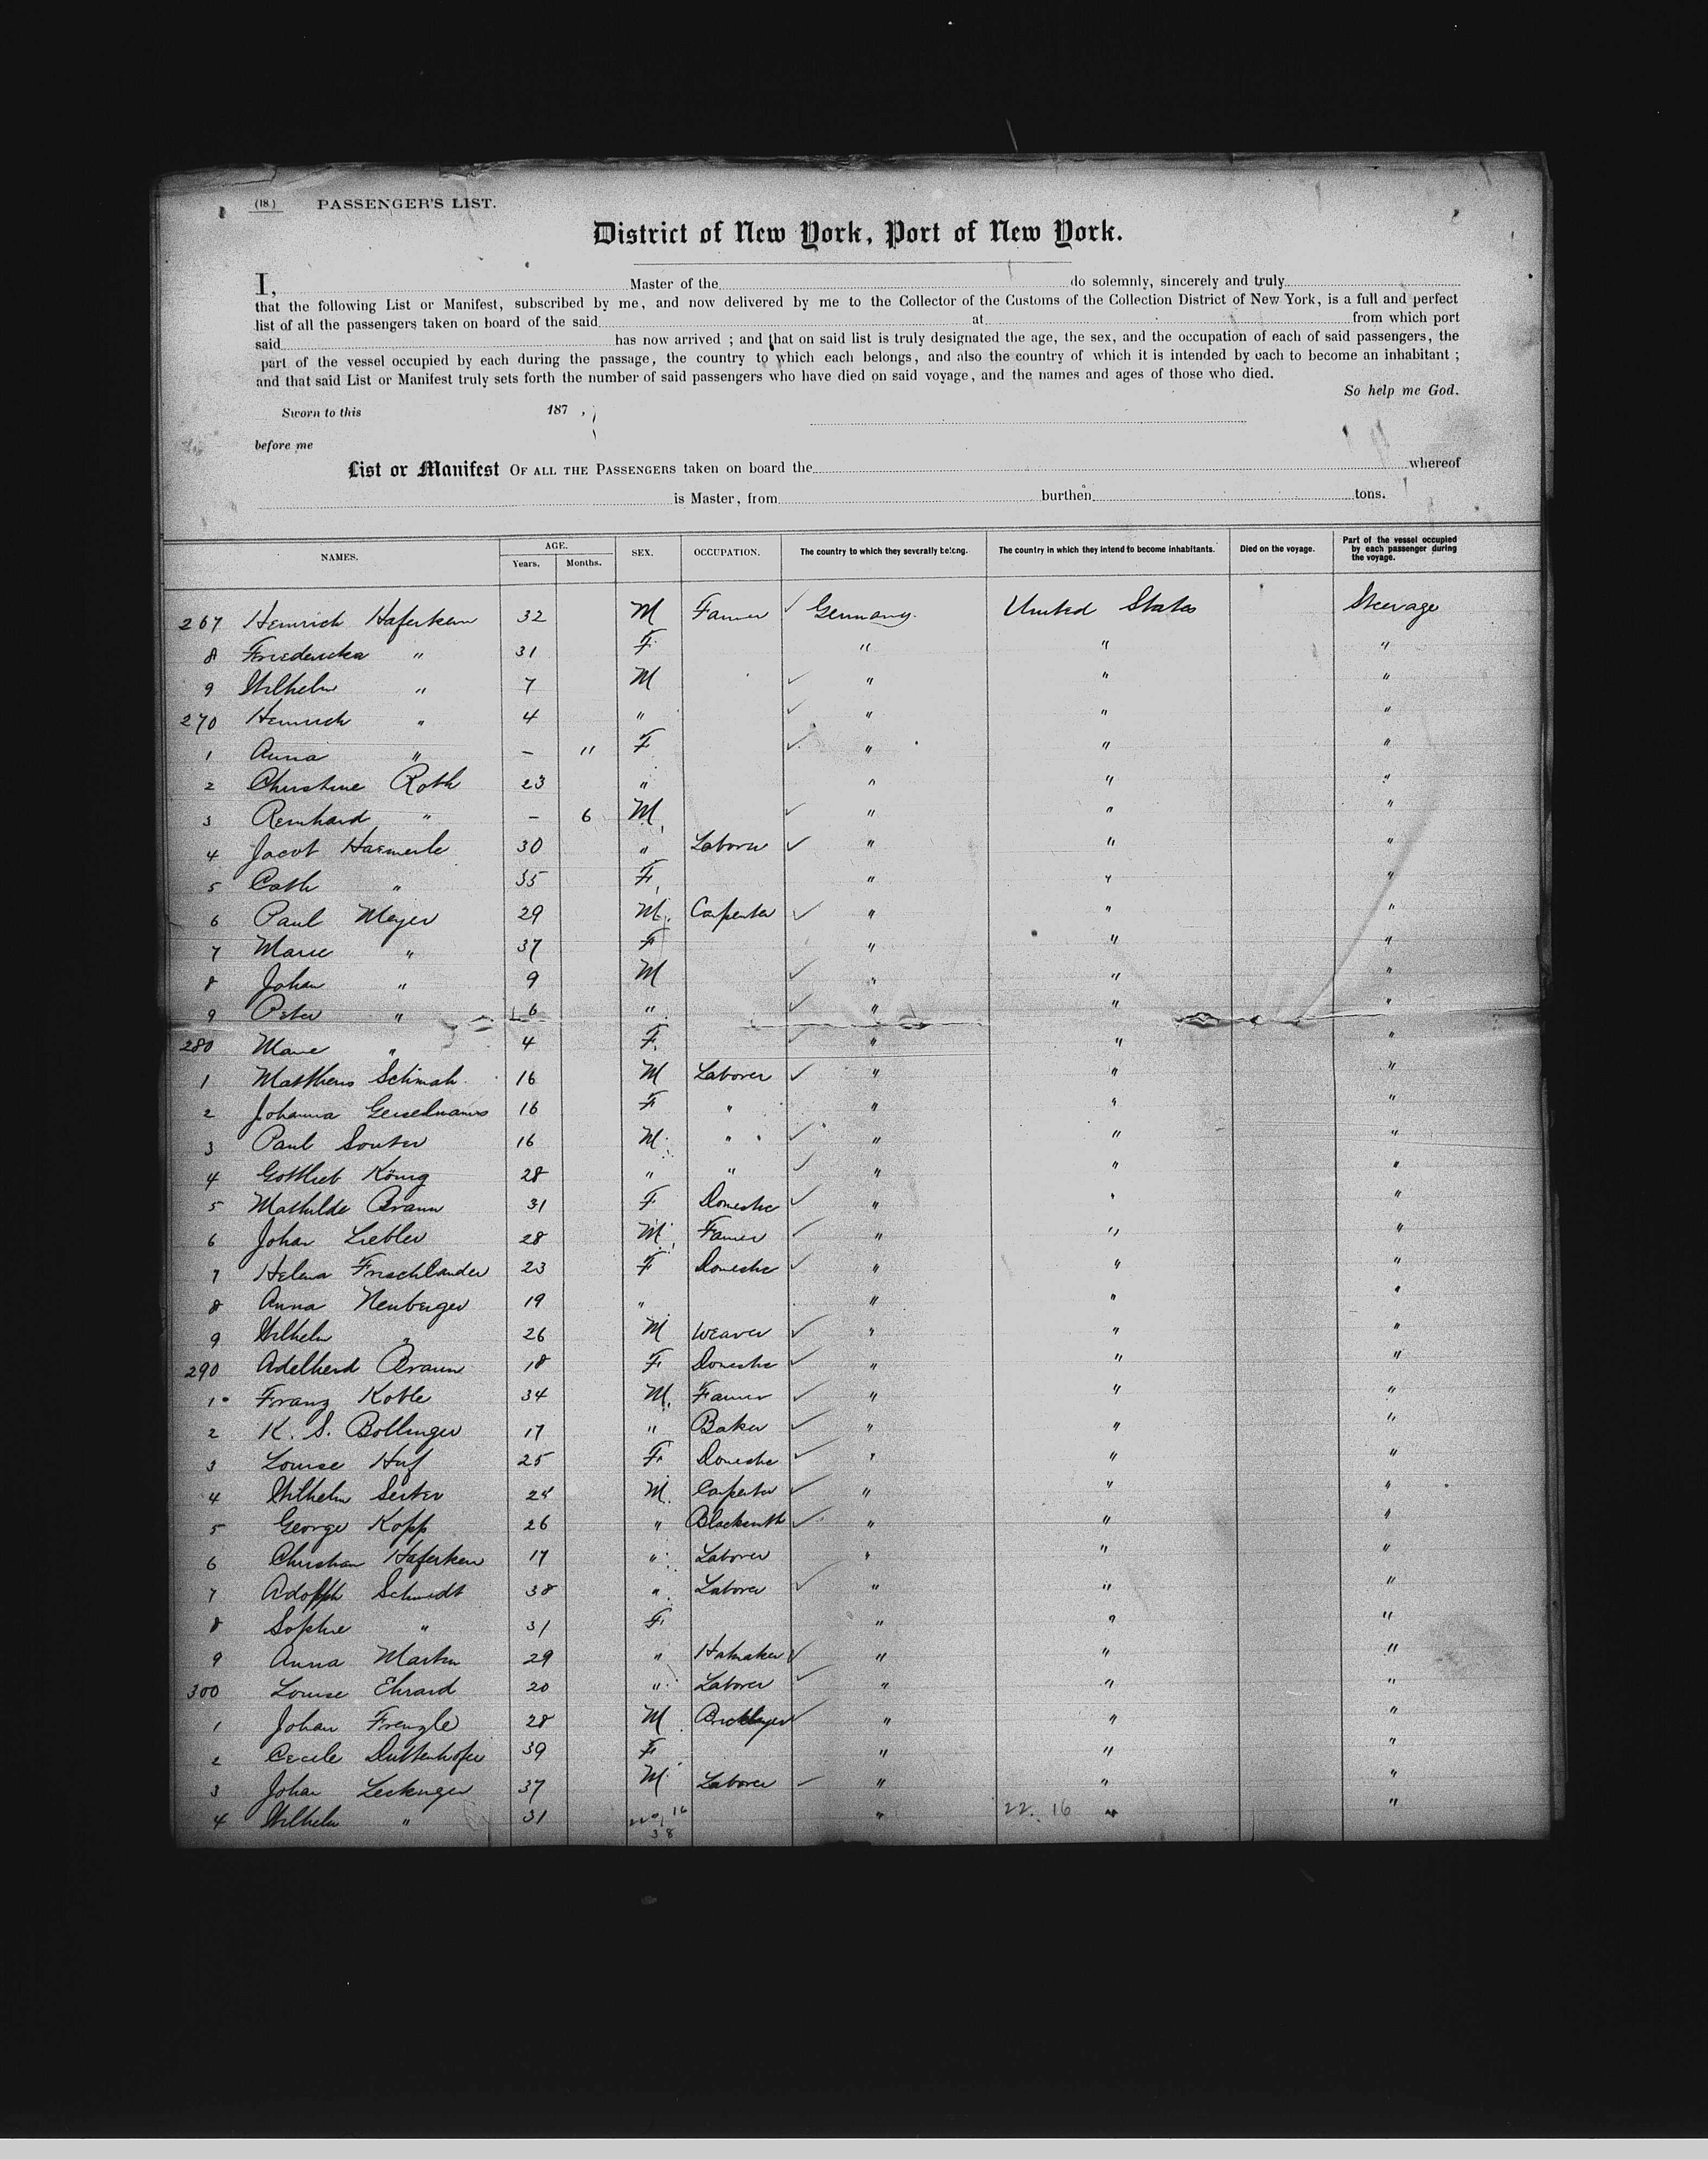 (18.) PASSENGER'S LIST.
District of New York, Port of New York.
I, Master of the do solemnly, sincerely and truly
that the following List or Manifest, subscribed by me, and now delivered by me to the Collector of the Customs of the Collection District of New York, is a full and perfect
list of all the passengers taken on board of the said at from which port
said has now arrived ; and that on said list is truly designated the age, the sex, and the occupation of each of said passengers, the
part of the vessel occupied by each during the passage, the country to which each belongs, and also the country of which it is intended by each to become an inhabitant ;
and that said List or Manifest truly sets forth the number of said passengers who have died on said voyage, and the names and ages of those who died.
So help me God.
Sworn to this 187 ,
before me
List or Manifest OF ALL THE PASSENGERS taken on board the whereof
is Master, from burthen tons.
NAMES. AGE. Years. Months. SEX. OCCUPATION. The country to which they severally belong. The country in which they intend to become inhabitants. Died on the voyage. Part of the vessel occupied by each passenger during the voyage.
267 Heinrich Haferkam 32 M Farmer Germany. United States Steerage
8 Friedericka " 31 F " " "
9 Wilhelm " 7 M " " "
270 Heinrich " 4 " " " "
1 Anna " – 11 F " " "
2 Christine Roth 23 " " " "
3 Reinhard " – 6 M " " "
4 Jacob Haemerle 30 " Laborer " " "
5 Cath " 35 F " " "
6 Paul Meyer 29 M. Carpenter " " "
7 Marie " 37 F " " "
8 Johan " 9 M " " "
9 Peter " 6 " " " "
280 Marie " 4 F. " " "
1 Matthews Schmah 16 M Laborer " " "
2 Johanna 16 F " " " "
3 Paul Souter 16 M. " " " "
4 Gottlieb König 28 " " " " "
5 Mathilde Braun 31 F Domestic " " "
6 Johan Liebler 28 M. Farmer " " "
7 Helena Frischlander 23 F Domestic " " "
8 Anna Neuberger 19 " " " "
9 Wilhelm " 26 M Weaver " " "
290 Adelheid Braun 18 F Domestic " " "
1 Franz Koble 34 M. Farmer " " "
2 K. S. Bollinger 17 " Baker " " "
3 Louise Huf 25 F Domestic " " "
4 Wilhelm Seiter M. Carpenter " " "
5 George Kopp 26 " Blacksmith " " "
6 Christian Haferkam 17 " Laborer " " "
7 Adolph Schmidt 38 " Laborer " " "
8 Sophie " 31 F " " "
9 Anna Martin 29 " Hatmaker " " "
300 Louise Ehrard 20 " Laborer " " "
1 Johan Frenzle 28 M Bricklayer " " "
2 Cecile Duttenhofer 39 F " " "
3 Johan Leckinger 37 M Laborer " " "
4 Wilhelm " 31 " 22. 16 " "
38